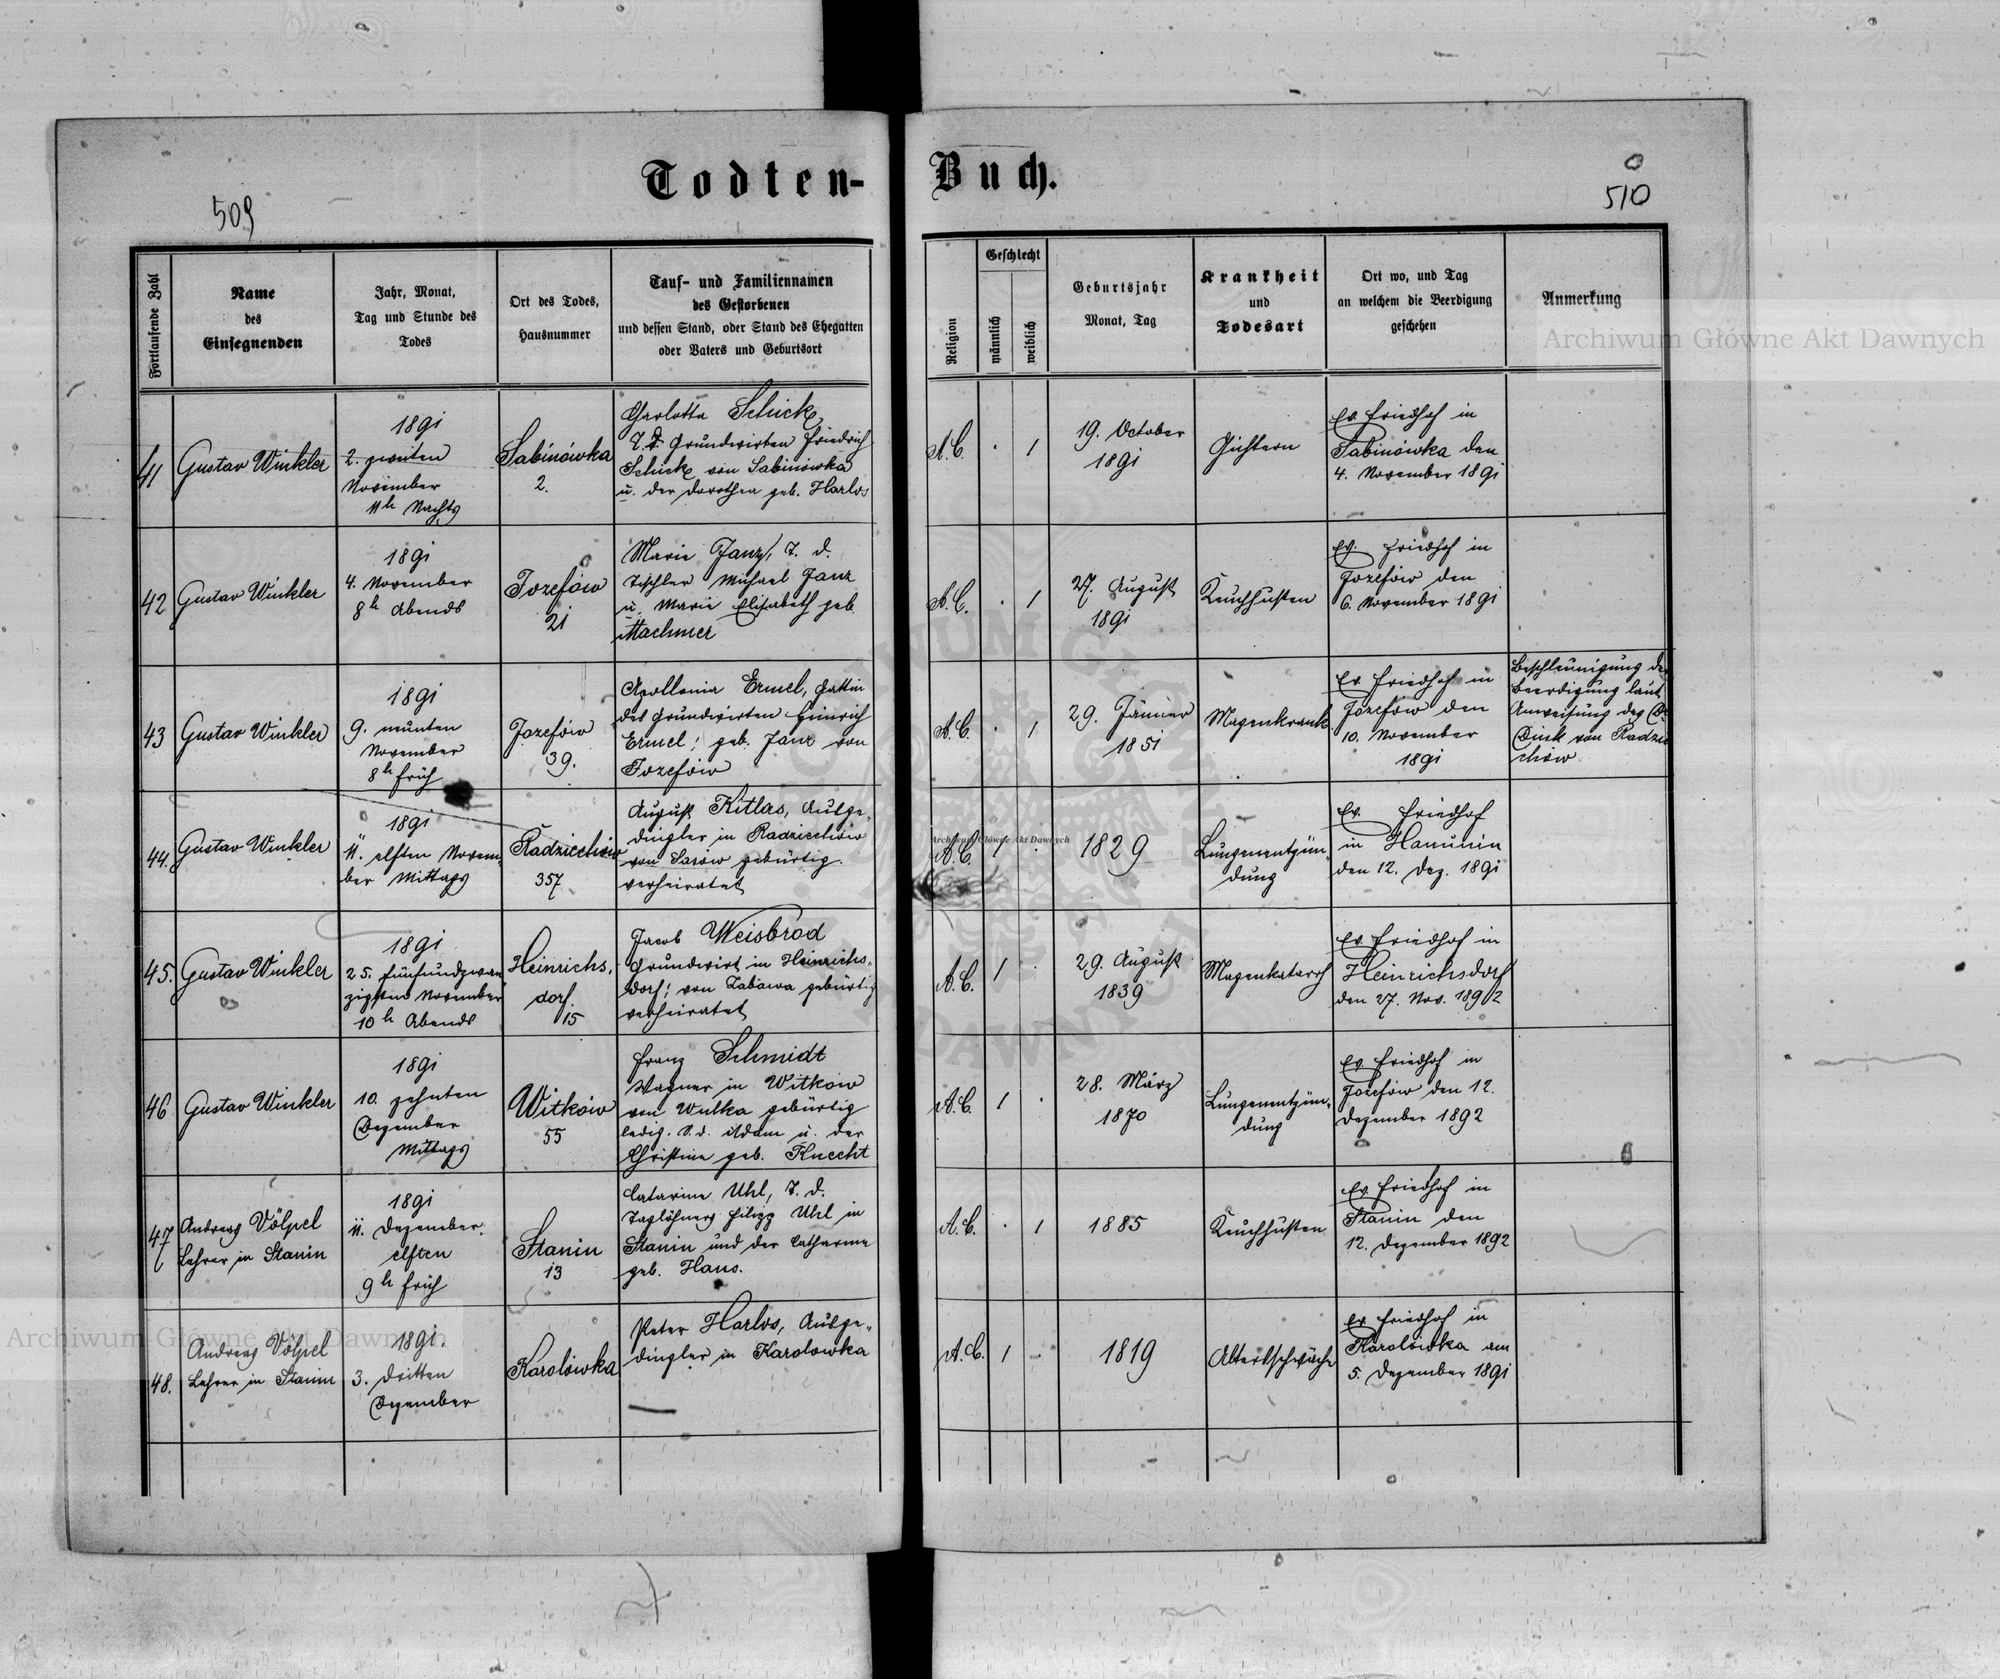 Todten-Buch.
509
510
Fortlaufende Zahl
Name
des
Einsegnenden
Jahr, Monat,
Tag und Stunde des
Todes
Ort des Todes,
Hausnummer
Tauf- und Familiennamen
des Gestorbenen
und dessen Stand, oder Stand des Ehegatten
oder Vaters und Geburtsort
Religion
Geschlecht
männlich
weiblich
Geburtsjahr
Monat, Tag
Krankheit
und
Todesart
Ort wo, und Tag
an welchem die Beerdigung
geschehen
Anmerkung
41
Gustav Winkler
1891
2. zweiten
November
11h Nachts
Sabinówka
2.
Charlotta Schick,
T. d. Grundwirten Friedrich
Schick von Sabinówka
u. der Dorothea geb. Harlos
A.C.
1
19. October
1891
Gichtern
Ev. Friedhof in
Sabinówka den
4. November 1891
42
Gustav Winkler
1891
4. November
8h Abends
Jozefów
21
Marie Janz, T. d.
Tischler Michael Janz
u. Marie Elisabeth geb.
Machmer
A.C.
1
27. August
1891
Keuchhusten
Ev. Friedhof in
Jozefów den
6. November 1891
43
Gustav Winkler
1891
9. neunten
November
8h früh
Jozefów
39.
Apollonia Ermel, Gattin
des Grundwirten Heinrich
Ermel; geb. Janz von
Jozefów
A.C.
1
29. Jänner
1851
Magenkrank
Ev. Friedhof in
Jozefów den
10. November
1891
Beschleunigung der
Beerdigung laut
Anweisung des
von Radzie
chów
44.
Gustav Winkler
1891
11. elften Novem,
ber Mittags
Radziechów
357
August Kitlas, Ausge-
dingler in Radziechów
von Sarow gebürtig.
verheiratet
A.C.
1
1829
Lungenentzün-
dung
Ev. Friedhof
in Hanunin
den 12. Dez. 1891
45.
Gustav Winkler
1891
25. fünfundzwan
zigsten November
10h Abends
Heinrichs,
dorf.
15
Jacob Weisbrod
Grundwirt in Heinrichs-
dorf; von Zabawa gebürtig
verheiratet
A.C.
1
29. August
1839
Magenkatarrh
Ev. Friedhof in
Heinrichsdorf
den 27. Nov. 1892
46
Gustav Winkler
1891
10. zehnten
Dezember
Mittags
Witków
55
Franz Schmidt
Wagner in Witków
von Wulka gebürtig
ledig. S. d. Adam u. der
Christine geb. Knecht
A.C.
1
28. März
1870
Lungenentzün-
dung
Ev. Friedhof in
Jozefów den 12.
Dezember 1892
47
Andreas Völpel
Lehrer in Stanin
1891
11. Dezember.
elften
9h früh
Stanin
13
Catarina Uhl, T. d.
Taglöhners Filipp Uhl in
Stanin und der Catharina
geb. Haus.
A.C.
1
1885
Keuchhusten
Ev. Friedhof in
Stanin den
12. Dezember 1892
48.
Andreas Völpel
Lehrer in Stanin
1891.
3. dritten
Dezember
Karolówka
Peter Harlos, Ausge-
dingler in Karolowka
A.C.
1
1819
Altersschwäche
Ev. Friedhof in
Karolówka am
5. Dezember 1891
Archiwum Główne Akt Dawnych
Archiwum Główne Akt Dawnych
Archiwum Główne Akt Dawnych